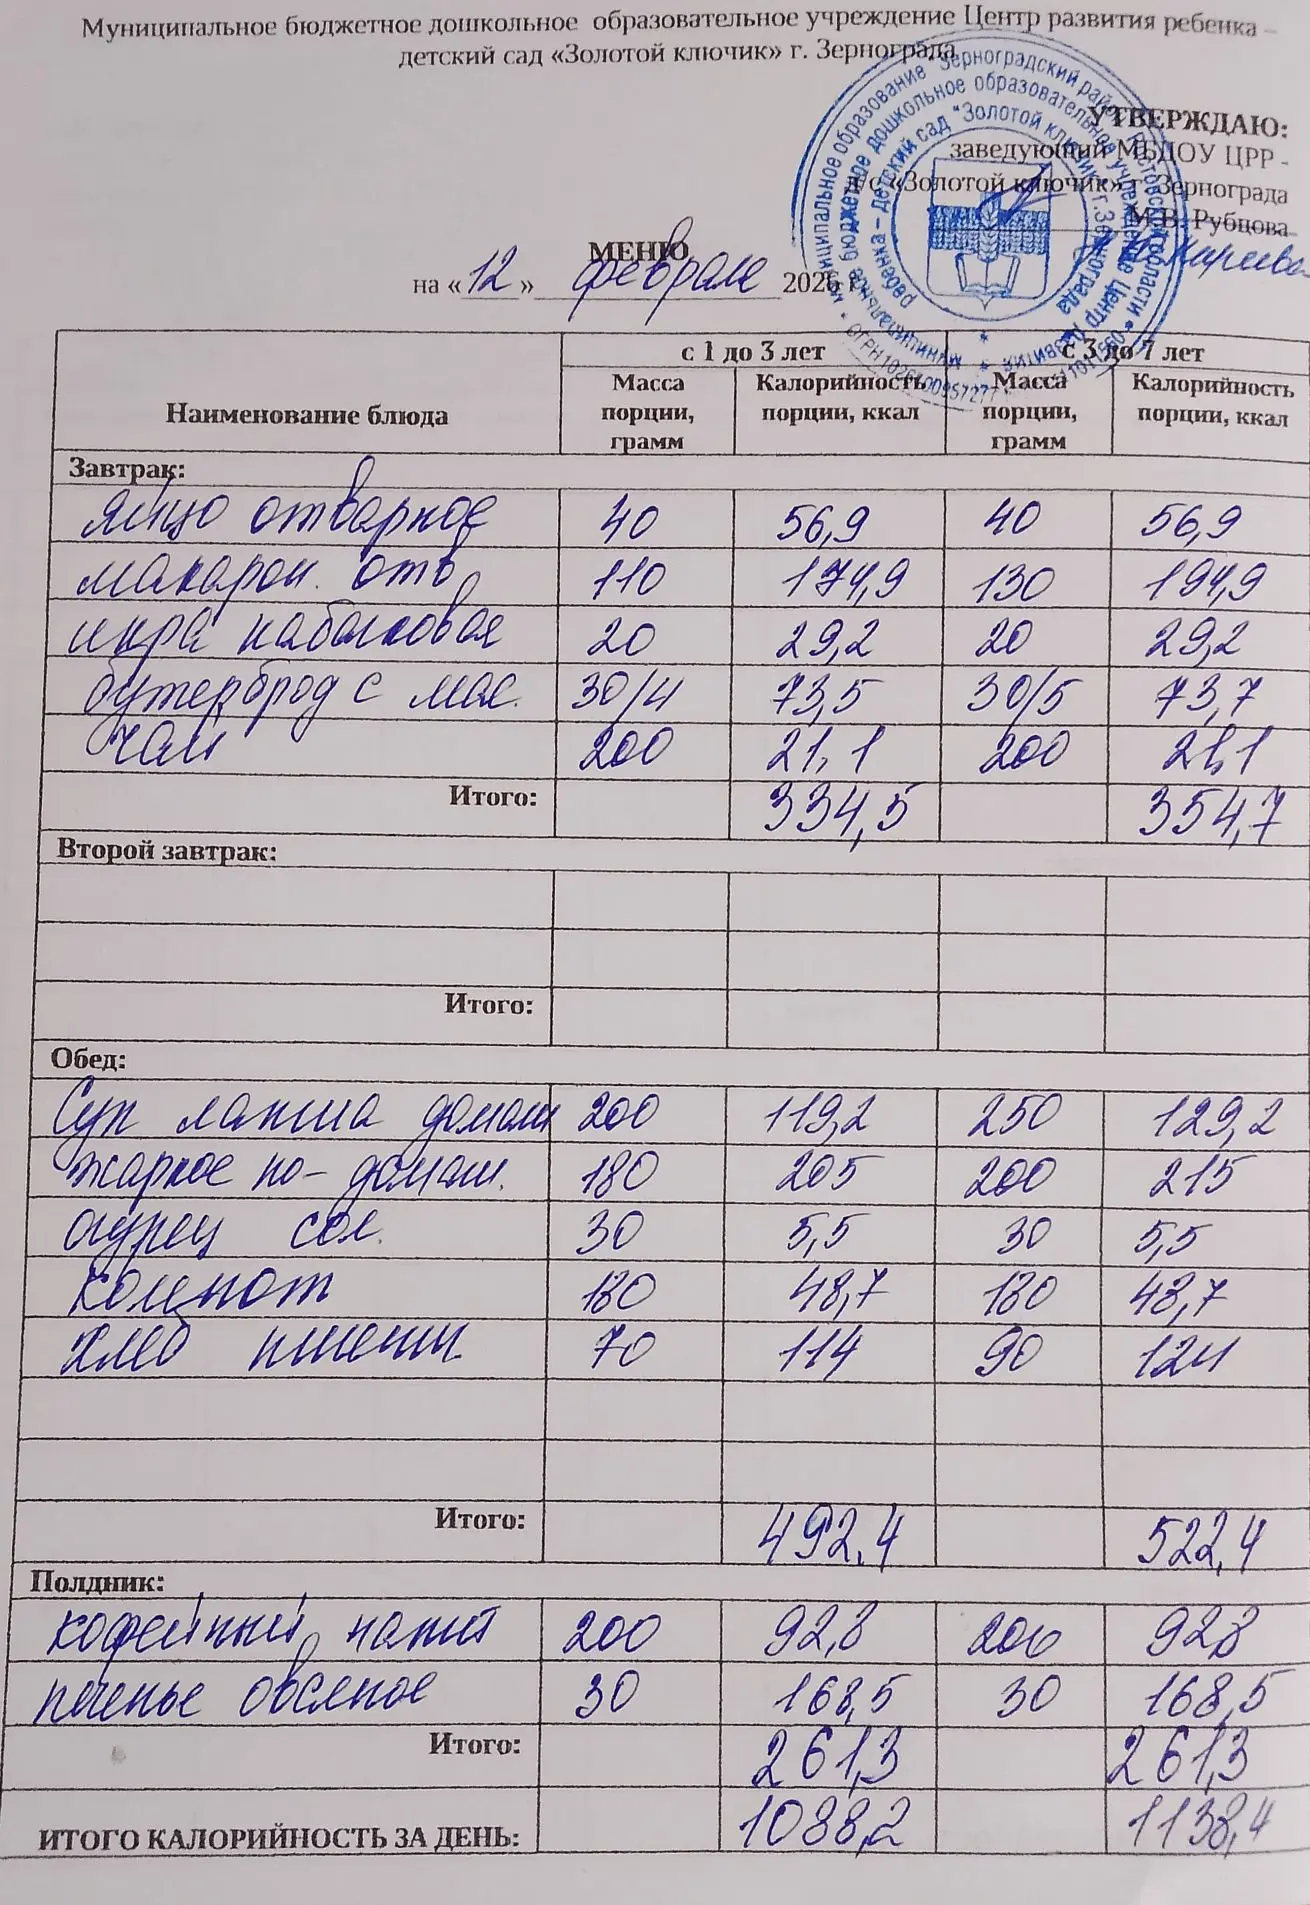 Муниципальное бюджетное дошкольное образовательное учреждение Центр развития ребенка –
детский сад «Золотой ключик» г. Зернограда
УТВЕРЖДАЮ:
заведующий МБДОУ ЦРР -
д/с «Золотой ключик» г. Зернограда
М.В. Рубцова
МЕНЮ
на «12» февраля 2026 г
Наименование блюда с 1 до 3 лет с 3 до 7 лет
Масса порции, грамм Калорийность порции, ккал Масса порции, грамм Калорийность порции, ккал
Завтрак:
яйцо отварное 40 56,9 40 56,9
макарон. отв 110 174,9 130 194,9
икра кабачковая 20 29,2 20 29,2
бутерброд с мас. 30/4 73,5 30/5 73,7
чай 200 21,1 200 21,1
Итого: 334,5 354,7
Второй завтрак:
Итого:
Обед:
Суп лапша домаш 200 119,2 250 129,2
жаркое по-домаш. 180 205 200 215
огурец сол. 30 5,5 30 5,5
компот 180 48,7 180 48,7
хлеб пшенич. 70 114 90 124
Итого: 492,4 522,4
Полдник:
кофейный напит 200 92,8 200 92,8
печенье овсяное 30 168,5 30 168,5
Итого: 261,3 261,3
ИТОГО КАЛОРИЙНОСТЬ ЗА ДЕНЬ: 1088,2 1138,4
муниципальное образование "Зерноградский район" Ростовской области
муниципальное бюджетное дошкольное образовательное учреждение Центр развития
ребенка – детский сад "Золотой ключик" г. Зернограда